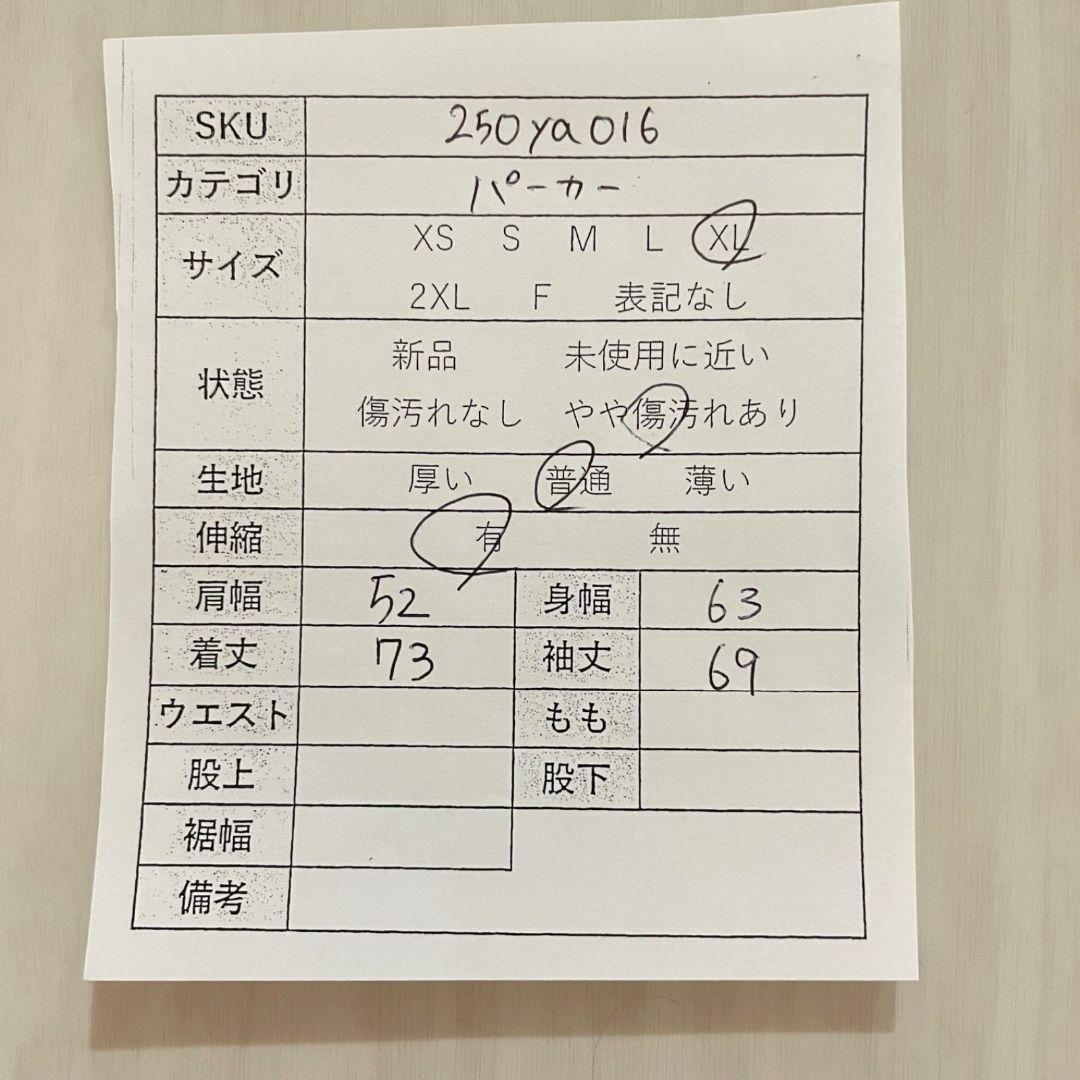 SKU 250ya016
カテゴリ パーカー
サイズ XS S M L XL
2XL F 表記なし
状態 新品 未使用に近い
傷汚れなし やや傷汚れあり
生地 厚い 普通 薄い
伸縮 有 無
肩幅 52 身幅 63
着丈 73 袖丈 69
ウエスト もも
股上 股下
裾幅
備考